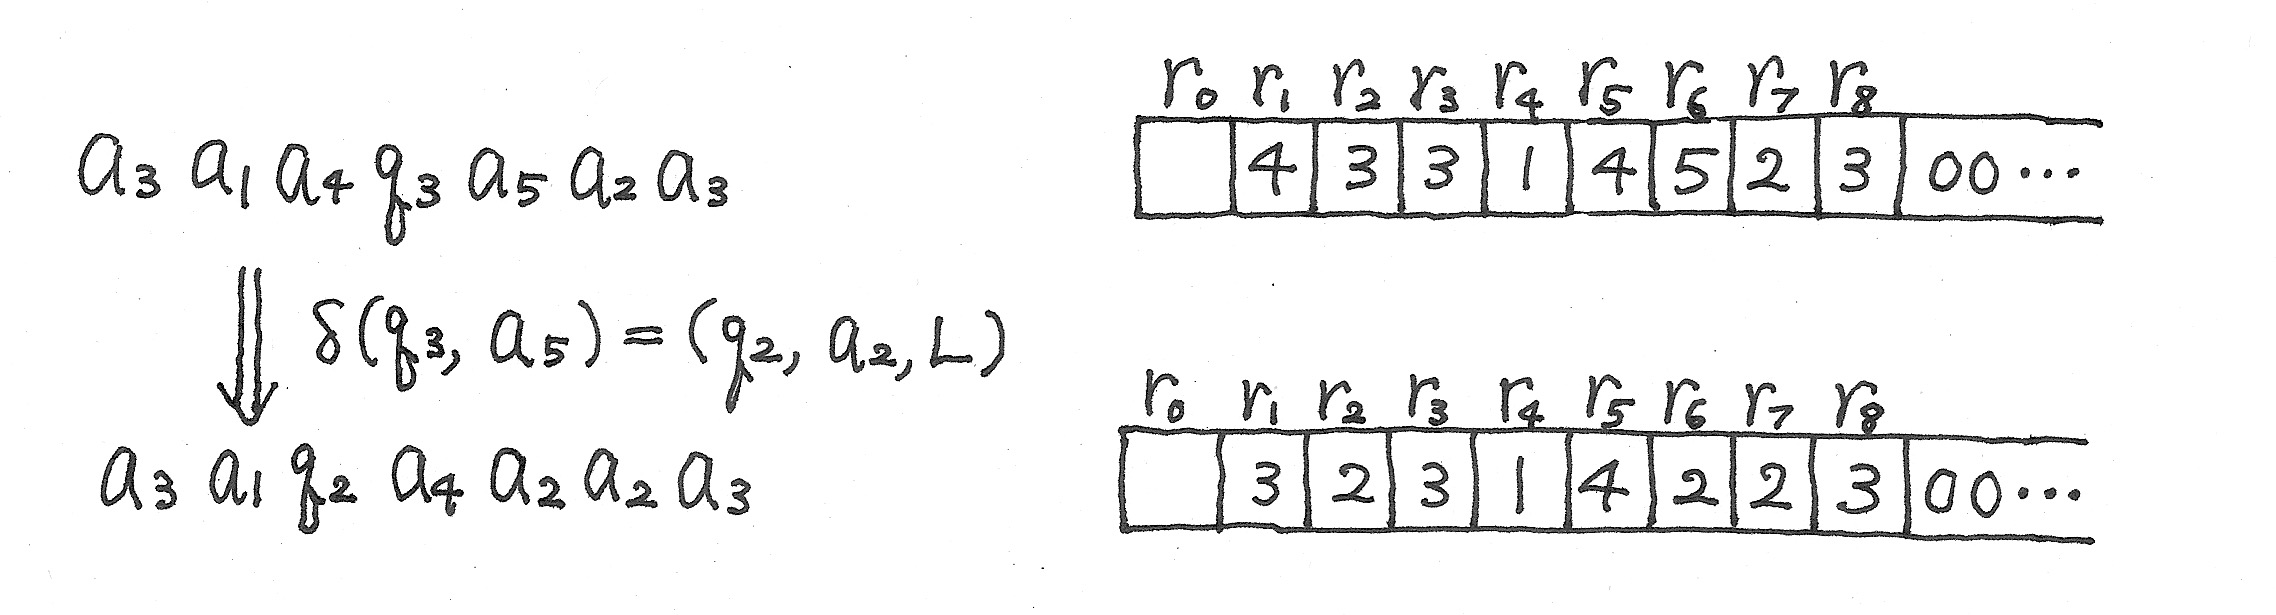 a₃ a₁ a₄ q₃ a₅ a₂ a₃
δ(q₃, a₅) = (q₂, a₂, L)
a₃ a₁ q₂ a₄ a₂ a₂ a₃
r₀ r₁ r₂ r₃ r₄ r₅ r₆ r₇ r₈
4 3 3 1 4 5 2 3 00⋯
r₀ r₁ r₂ r₃ r₄ r₅ r₆ r₇ r₈
3 2 3 1 4 2 2 3 00⋯